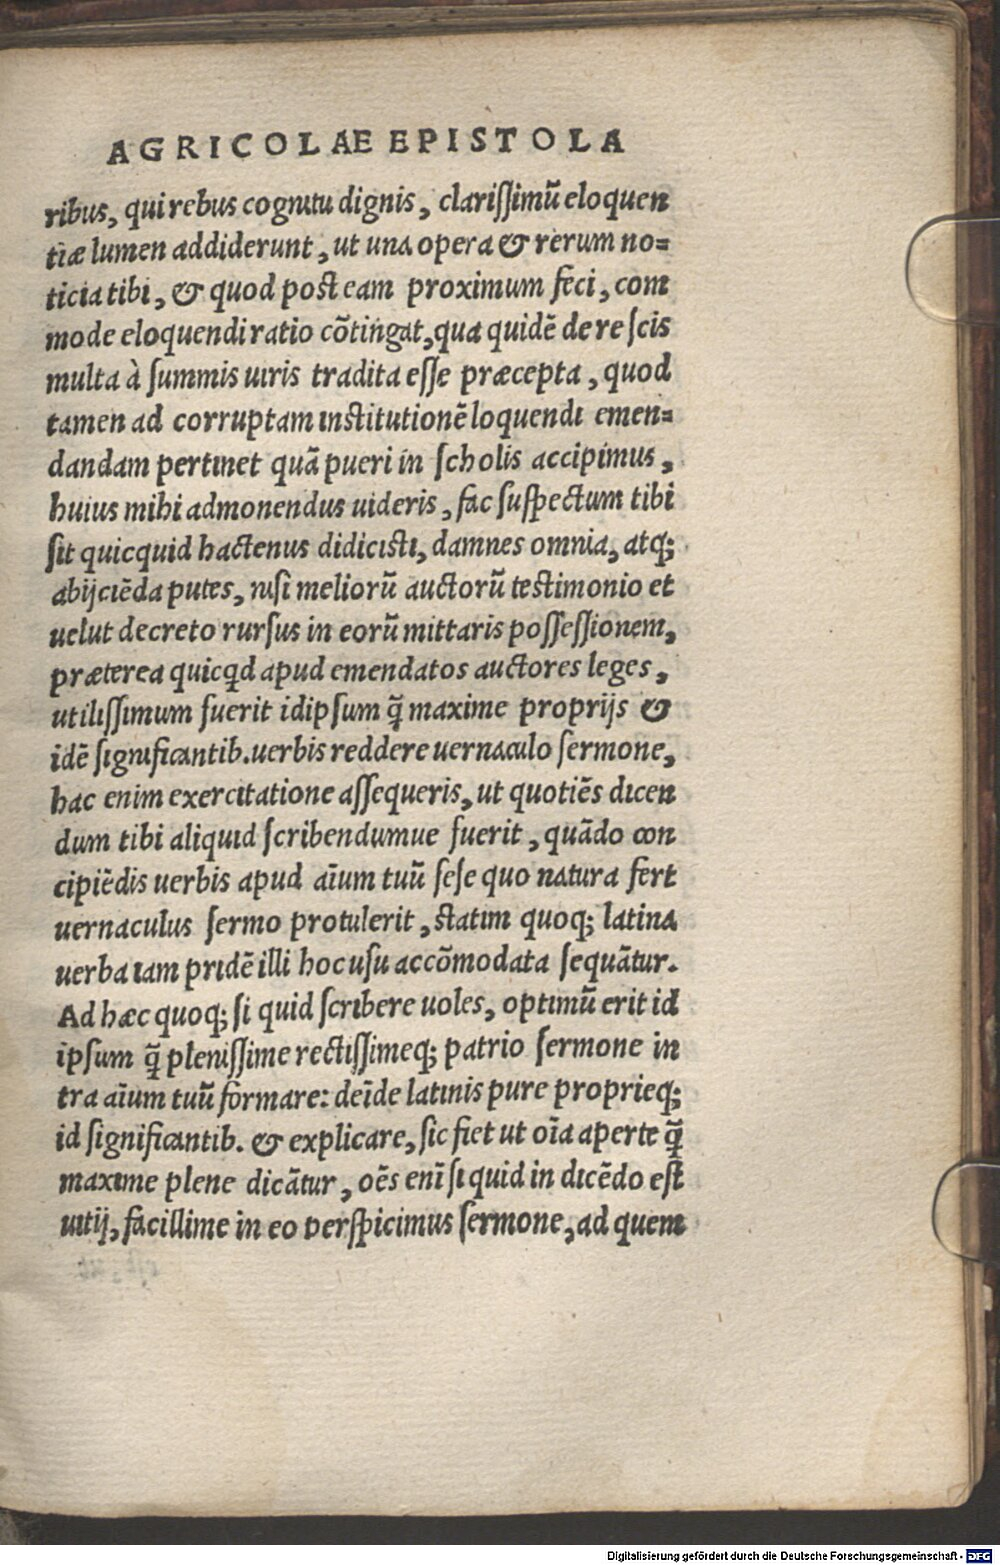 AGRICOLAE EPISTOLA
ribus, qui rebus cognitu dignis, clarissimũ eloquen
tiæ lumen addiderunt, ut una opera & rerum no=
ticia tibi, & quod post eam proximum feci, com
mode eloquendi ratio cõtingat, qua quidẽ de re scis
multa à summis uiris tradita esse præcepta, quod
tamen ad corruptam institutionẽ loquendi emen=
dandam pertinet quã pueri in scholis accipimus,
huius mihi admonendus uideris, fac suspectum tibi
sit quicquid hactenus didicisti, damnes omnia, atq;
abijciẽda putes, nisi meliorũ auctorũ testimonio et
uelut decreto rursus in eorũ mittaris possessionem,
præterea quicqd apud emendatos auctores leges,
utilissimum fuerit idipsum q̃ maxime proprijs &
idẽ significantib. uerbis reddere uernaculo sermone,
hac enim exercitatione assequeris, ut quotiẽs dicen
dum tibi aliquid scribendumue fuerit, quãdo con
cipiẽdis uerbis apud aĩum tuũ sese quo natura fert
uernaculus sermo protulerit, statim quoq; latina
uerba iam pridẽ illi hoc usu accõmodata sequãtur.
Ad hæc quoq; si quid scribere uoles, optimũ erit id
ipsum q̃ plenissime rectissimeq; patrio sermone in
tra aĩum tuũ formare: deĩde latinis pure proprieq;
id significantib. & explicare, sic fiet ut oĩa aperte q̃
maxime plene dicãtur, oẽs enĩ si quid in dicẽdo est
uitij, facillime in eo perspicimus sermone, ad quem
Digitalisierung gefördert durch die Deutsche Forschungsgemeinschaft - DFG